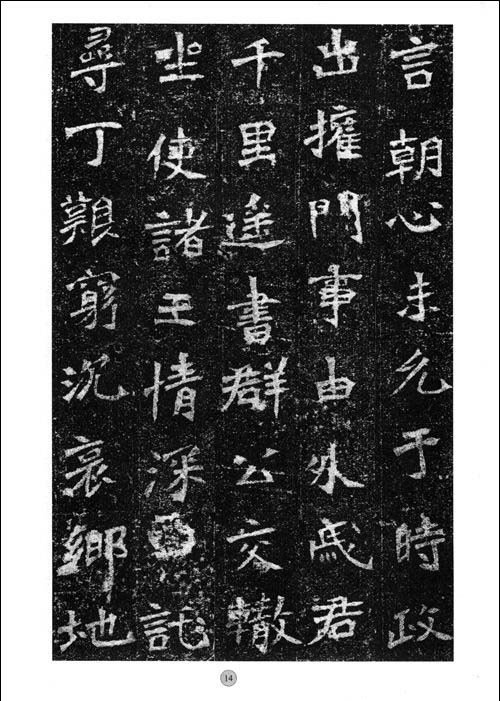 言朝心未允于時政
出權門事由外戚君
千里遥書群公交轍
坐使諸王情深託
尋丁艱窮沉哀鄉地
14